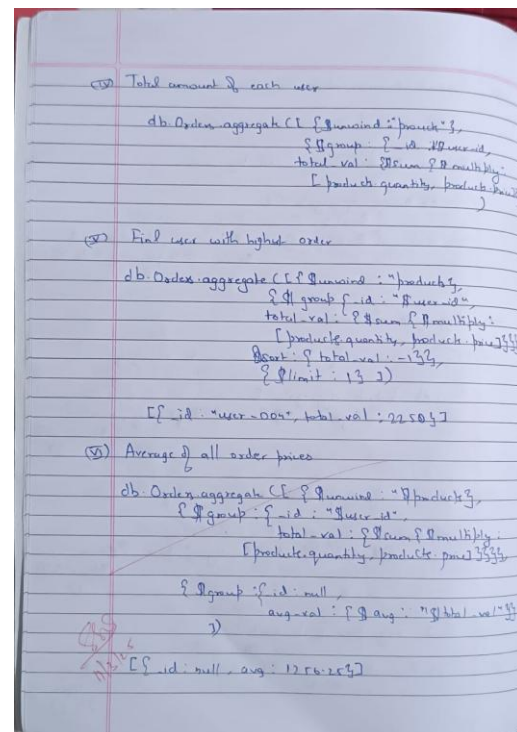 (IV) Total amount of each user
db.Orders.aggregate([{$unwind:"products"},
{$group: {_id:"$user-id,
total-val: {$sum{$multiply:
[products.quantity, products.price
)
(V) Find user with highest order
db.Orders.aggregate([{$unwind:"products},
{$group{_id:"$user-id",
total-val:"{$sum{$multiply:
[products.quantity, product.price]}}}
$sort:{total-val:-1}},
{$limit:1}])
[{_id:"user-004", total-val:2250}]
(VI) Average of all order prices
db.Orders.aggregate([{$unwind:"$products},
{$group:{_id:"$user-id",
total-val:{$sum{$multiply:
[products.quantity, products.price]}}}},
{$group:{_id:null,
avg-val:{$avg:"$total-val"}}
])
[{_id:null, avg:1256.25}]